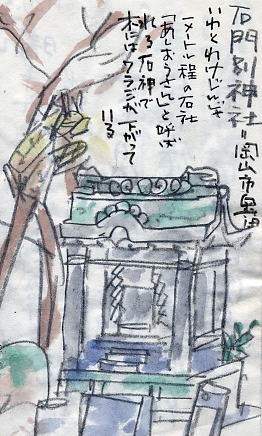 石門別神社＝岡山市奥田
いわとわけじんじゃ
一メートル程の石社
「あしおうさん」と呼ば
れる石神で
木にはワラジが下がって
いる